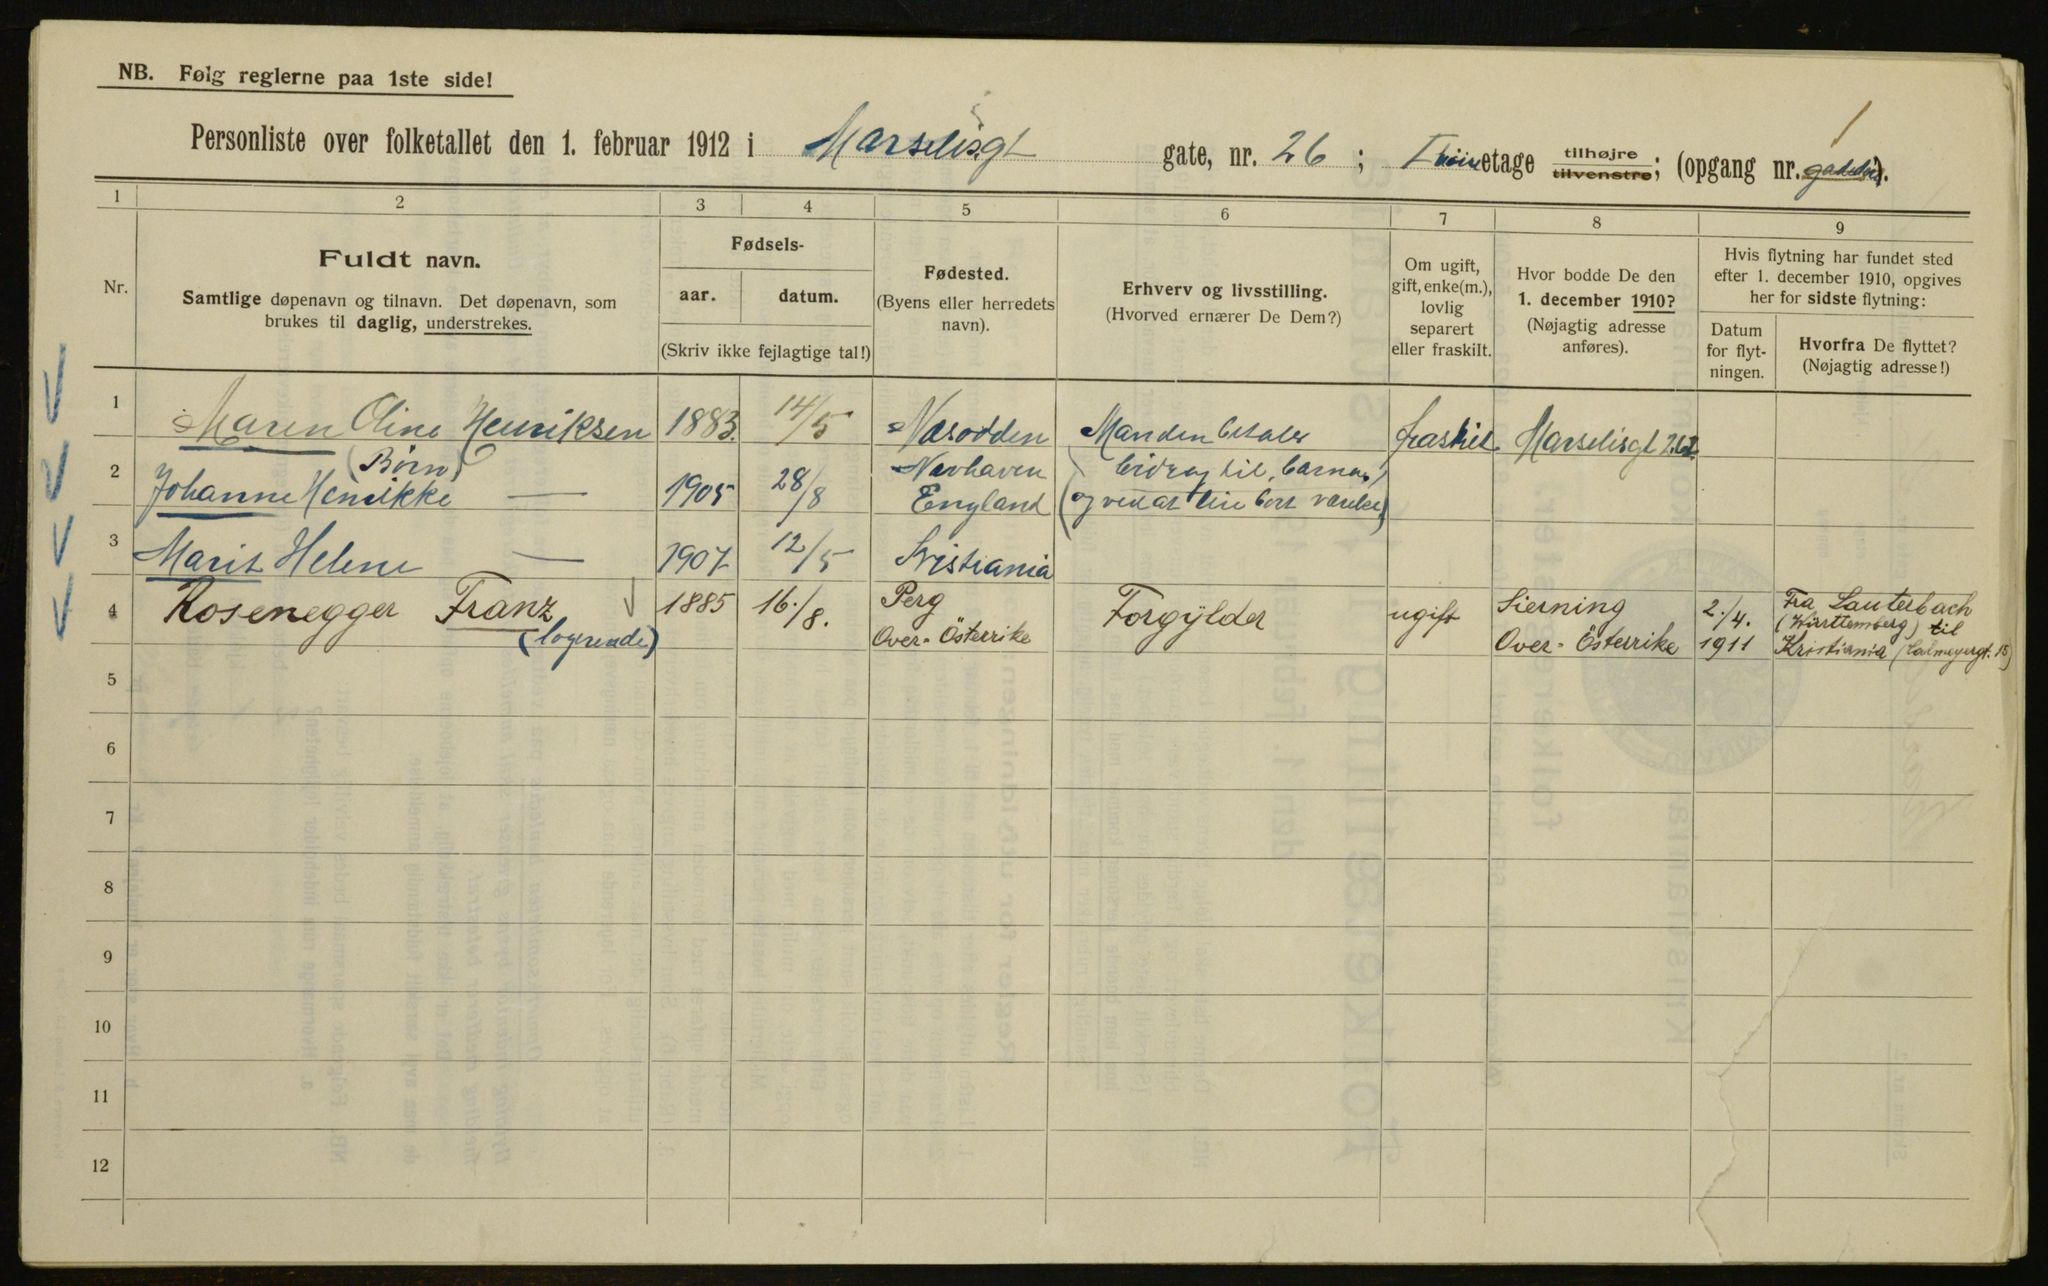 NB. Følg reglerne paa 1ste side!
1
Personliste over folketallet den 1. februar 1912 i Marselisgt gate, nr. 26 ; etage tilhøjre tilvenstre ; (opgang nr. ).
1 2 3 4 5 6 7 8 9
Nr.
Fuldt navn.
Samtlige døpenavn og tilnavn. Det døpenavn, som
brukes til daglig, understrekes.
Fødsels-
aar. datum.
(Skriv ikke fejlagtige tal!)
Fødested.
(Byens eller herredets
navn).
Erhverv og livsstilling.
(Hvorved ernærer De Dem?)
Om ugift,
gift, enke(m.),
lovlig
separert
eller fraskilt.
Hvor bodde De den
1. december 1910?
(Nøjagtig adresse
anføres).
Hvis flytning har fundet sted
efter 1. december 1910, opgives
her for sidste flytning:
Datum
for flyt-
ningen.
Hvorfra De flyttet?
(Nøjagtig adresse!)
1 Maren Oline Henriksen 1883. 14/5 Næsodden Manden betaler fraskilt Marselisgt 26
(Børn)
2 Johanne Henrikke — 1905 28/8 Newhaven England bidrag til barna
(og ved at
3 Marit Helene — 1907 12/5 Kristiania
4 Rosenegger Franz 1885 16./8. Perg Forgylder ugift Sierning 2./4. Fra Lauterbach
(Württemberg) til
(logerende) Over-Österrike Over-Österrike 1911 Kristiania (Calmeyergt. 15)
5
6
7
8
9
10
11
12